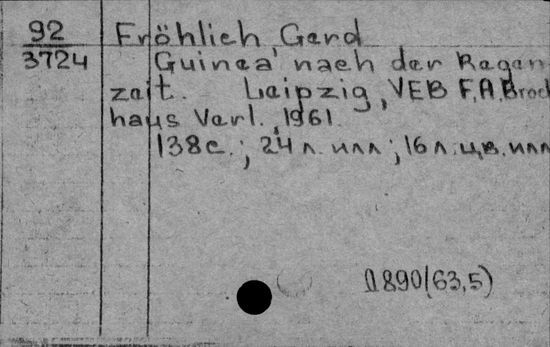 92
3724
Fröhlich, Gerd
Guinea nach der Regen
zeit. Leipzig, VEB F.A. Brock
haus Verl., 1961.
138 с.; 24 л. илл; 16 л. цв. илл
Д890(63,5)